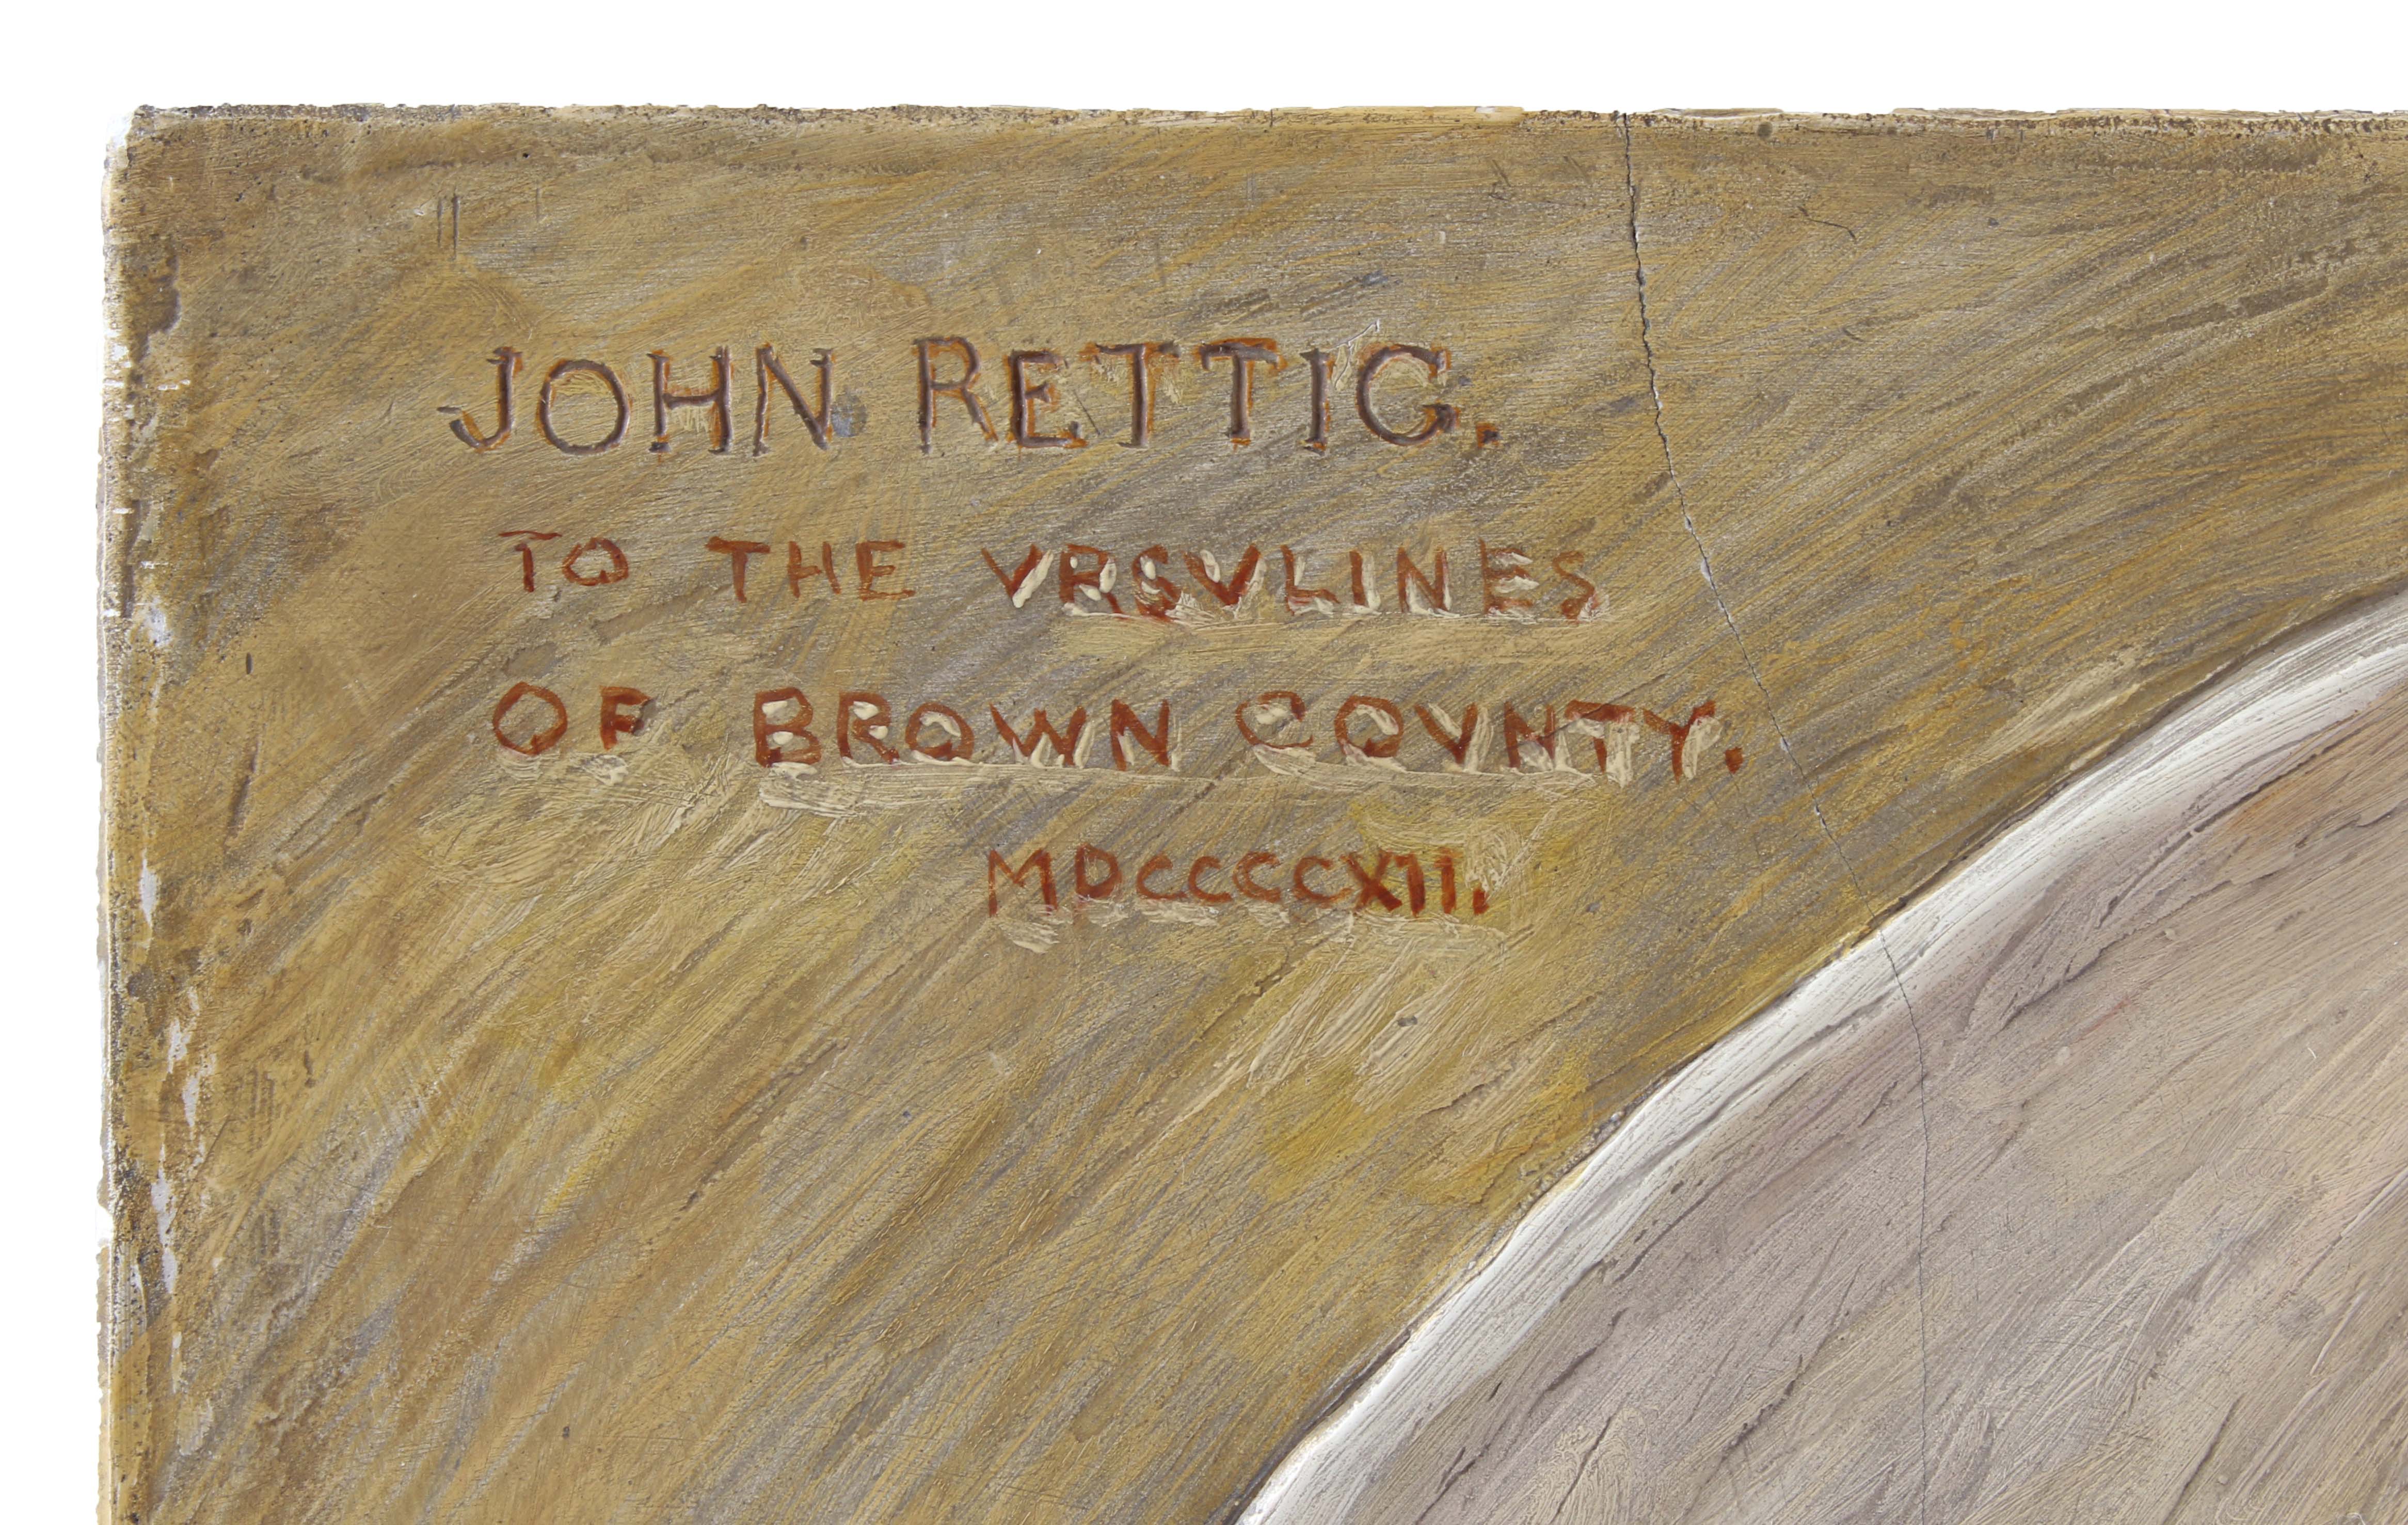 JOHN RETTIG.
TO THE VRSVLINES
OF BROWN COVNTY.
MDCCCCXII.